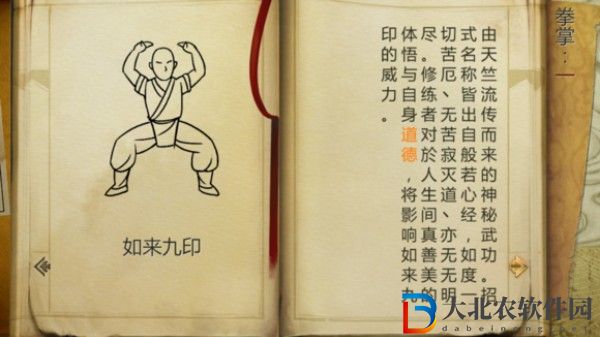 拳掌：一
由天竺流传而来的神秘武功。招
式名称皆出自般若心经，如度一
切苦厄、无苦寂灭道、亦无无明
尽。修练者对於人生间真善美的
体悟与自身道德，将影响如来九
印的威力。
如来九印
大北农软件园
dabeinong.net